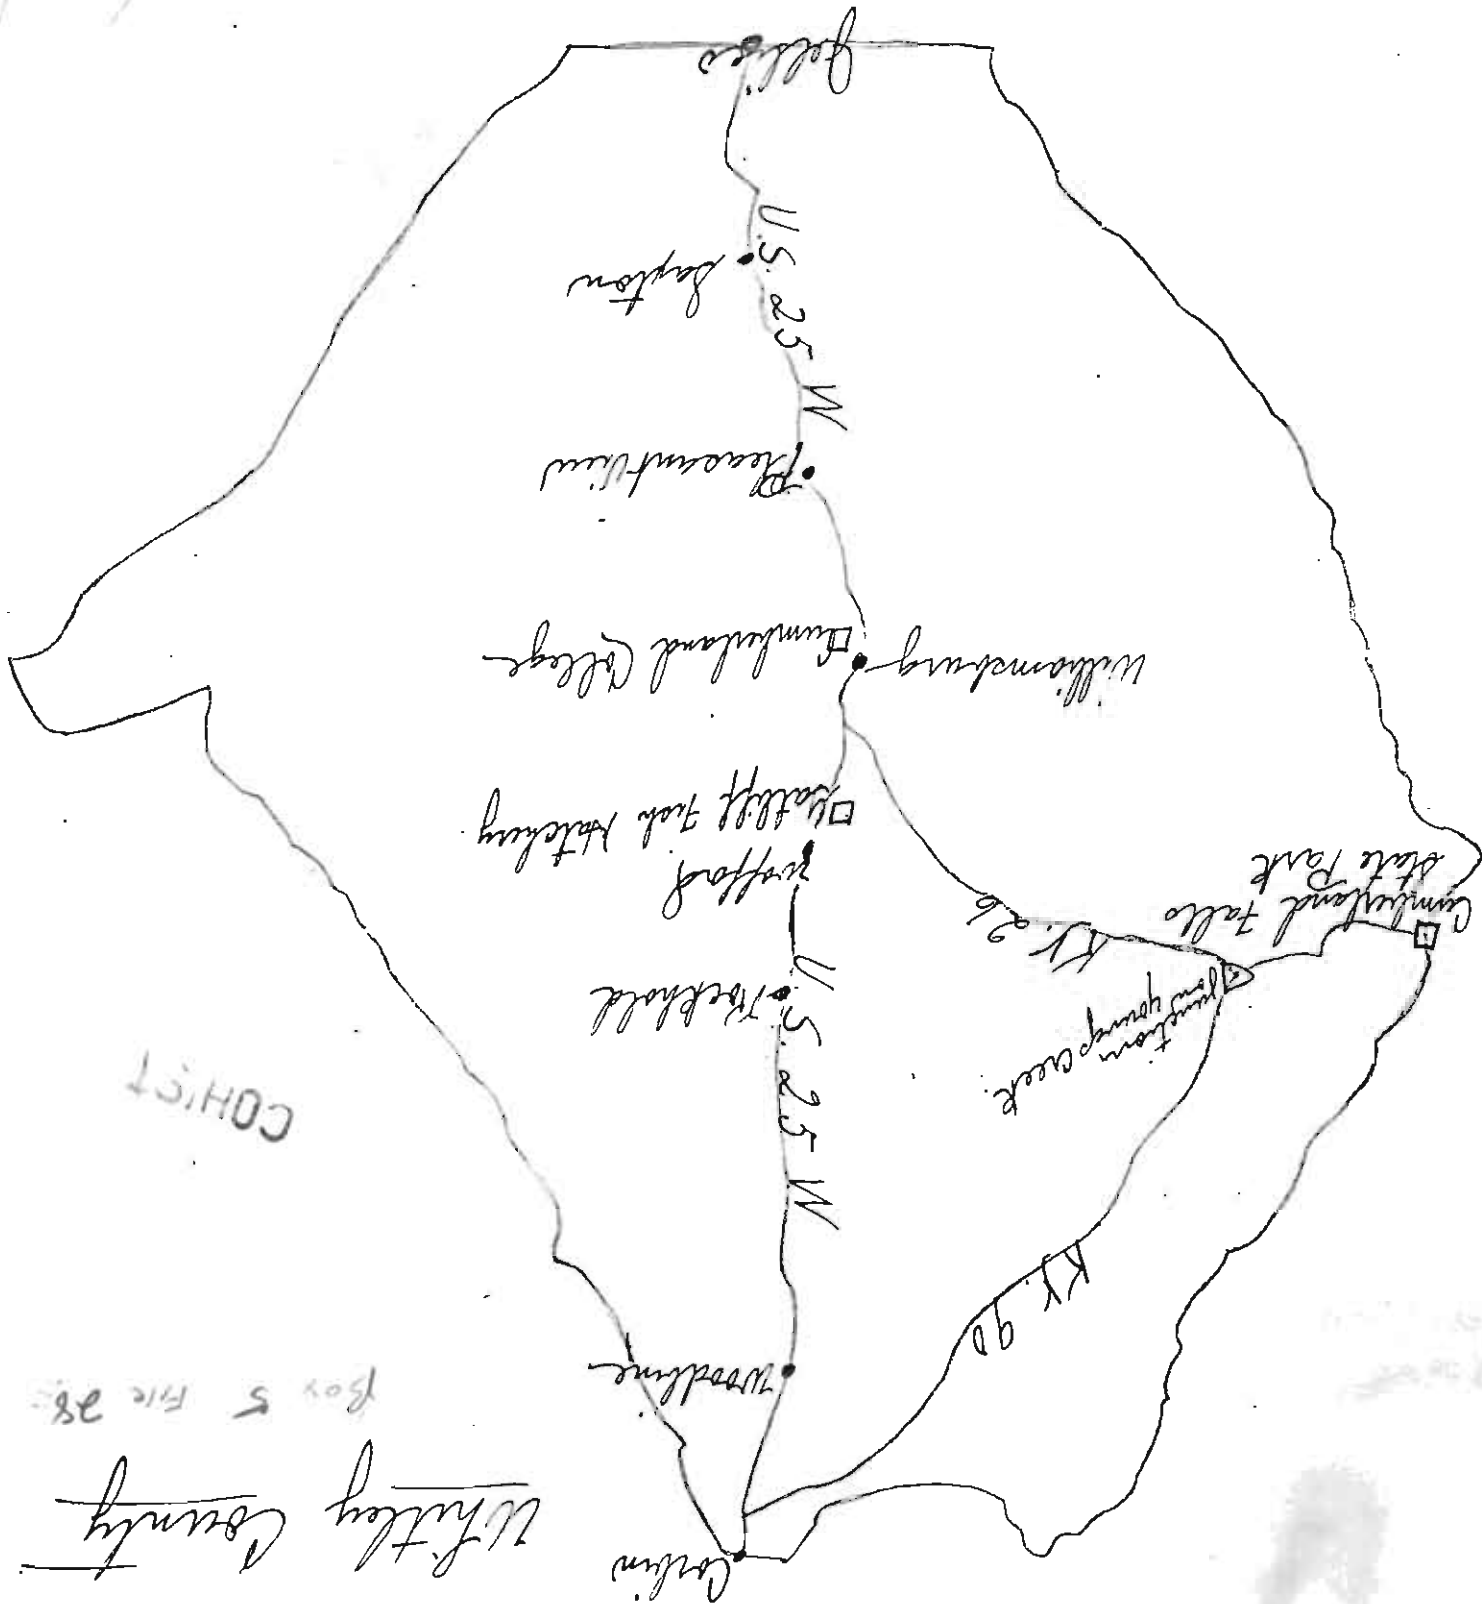 Whitley County
Box 5 File 28
Corbin
Woodbine
KY. 90
COHIST
U.S. 25 W
Rockhold
Junction
on young creek.
KY. 26
Cumberland Falls
State Park
Wofford
Gatliff Fish Hatchery
Williamsburg
Cumberland College
Pleasant View
U.S. 25 W
Saxton
Jellico